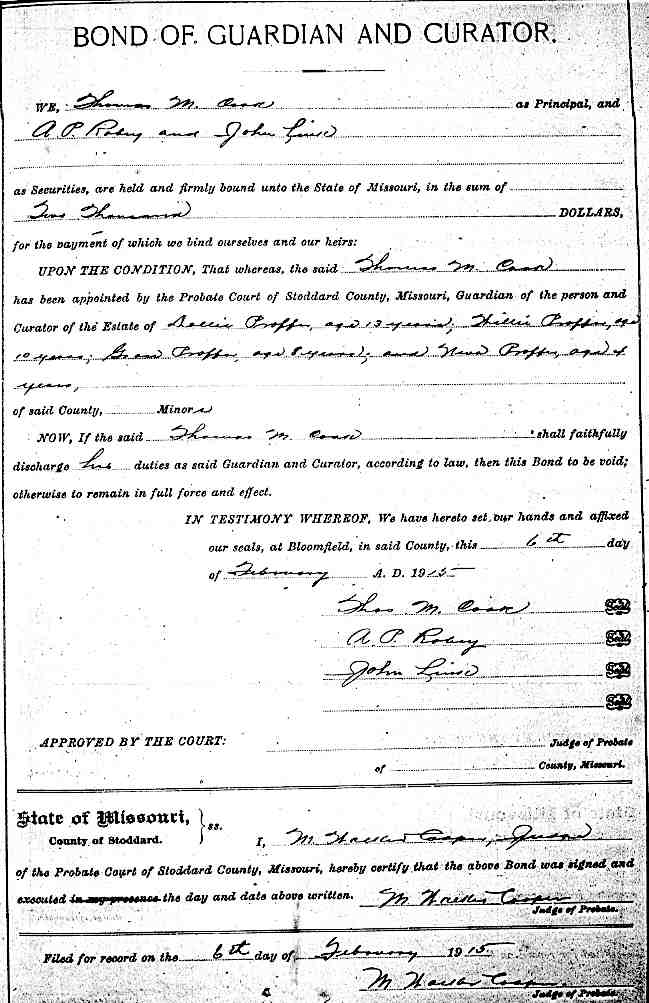 BOND OF GUARDIAN AND CURATOR.
WE, Thomas M. Cook as Principal, and
A. P. Robey and John
as Securities, are held and firmly bound unto the State of Missouri, in the sum of
Thousand DOLLARS,
for the payment of which we bind ourselves and our heirs:
UPON THE CONDITION, That whereas, the said Thomas M. Cook
has been appointed by the Probate Court of Stoddard County, Missouri, Guardian of the person and
Curator of the Estate of Dollie Proffer, age 13 years; Willie Proffer, age
10 years; Proffer, age 8 years; and Neva Proffer, age 4
years,
of said County, Minors
NOW, If the said Thomas M. Cook shall faithfully
discharge his duties as said Guardian and Curator, according to law, then this Bond to be void;
otherwise to remain in full force and effect.
IN TESTIMONY WHEREOF, We have hereto set our hands and affixed
our seals, at Bloomfield, in said County, this 6th day
of February A. D. 1915
Thos M. Cook Seal
A. P. Robey Seal
John Seal
Seal
APPROVED BY THE COURT: Judge of Probate
of County, Missouri.
State of Missouri,
County of Stoddard. } ss. I, M Walker Cooper, Judge
of the Probate Court of Stoddard County, Missouri, hereby certify that the above Bond was signed and
executed in my presence the day and date above written. M Walker Cooper
Judge of Probate.
Filed for record on the 6th day of February 1915
M Walker Cooper
Judge of Probate.